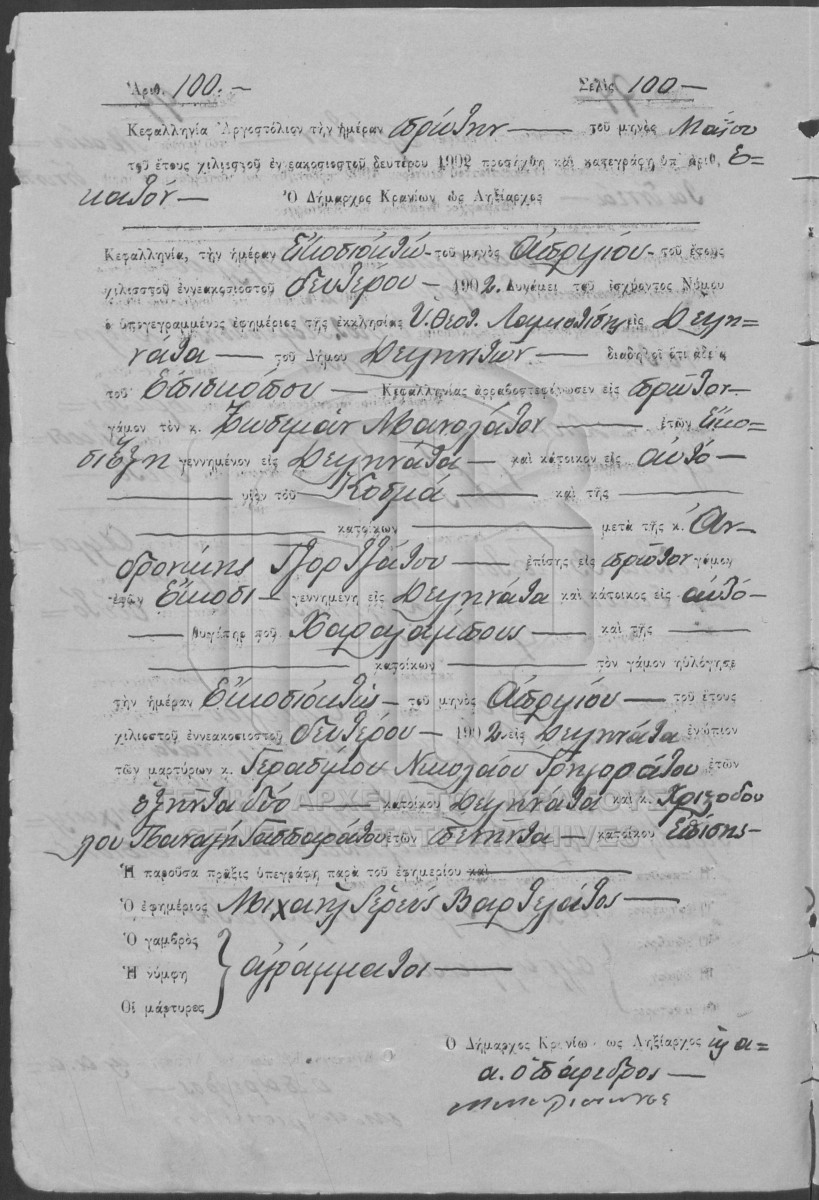 Ἀριθ. 100. — Σελὶς 100 —
Κεφαλληνία Ἀργοστόλιον τὴν ἡμέραν πρώτην — τοῦ μηνὸς Μαΐου
τοῦ ἔτους χιλιοστοῦ ἐννεακοσιοστοῦ δευτέρου 1902 προσήχθη καὶ κατεγράφη ὑπ' ἀριθ. ἑ-
κατόν — Ὁ Δήμαρχος Κρανίων ὡς Ληξίαρχος
Κεφαλληνία, τὴν ἡμέραν Εἰκοσιοκτώ - τοῦ μηνὸς Ἀπριλίου - τοῦ ἔτους
χιλιοστοῦ ἐννεακοσιοστοῦ δευτέρου — 1902. Δυνάμει τοῦ ἰσχύοντος Νόμου
ὁ ὑπογεγραμμένος ἐφημέριος τῆς ἐκκλησίας Ὑ. Θεοτ. εἰς Δειλη-
νάτα — τοῦ Δήμου Δειληνάτων — διαδηλοῖ ὅτι ἀδείᾳ
τοῦ Ἐπισκόπου — Κεφαλληνίας ἀρραβοστεφάνωσεν εἰς πρῶτον
γάμον τὸν κ. Ζώσιμον Μανολάτον — ἐτῶν Εἰκο-
σιέξη γεννημένον εἰς Δειληνάτα — καὶ κάτοικον εἰς αὐτό —
— υἱὸν τοῦ Κοσμᾶ — καὶ τῆς —
— κατοίκων — μετὰ τῆς κ. Ἀν-
δρονίκης Τζορτζάτου — ἐπίσης εἰς πρῶτον γάμον
ἐτῶν Εἴκοσι — γεννημένη εἰς Δειληνάτα καὶ κάτοικος εἰς αὐτό —
— θυγάτηρ τοῦ Χαραλάμπους — καὶ τῆς —
— κατοίκων — τὸν γάμον ηὐλόγησε
τὴν ἡμέραν Εἰκοσιοκτώ — τοῦ μηνὸς Ἀπριλίου — τοῦ ἔτους
χιλιοστοῦ ἐννεακοσιοστοῦ δευτέρου — 1902. εἰς Δειληνάτα ἐνώπιον
τῶν μαρτύρων κ. Γερασίμου Νικολάου Γρηγοράτου ἐτῶν
ἑξήντα δύο — κατοίκου Δειληνάτα καὶ κ. Χριζοδου
λου Παναγῆ Γασπαράτου ἐτῶν πενήντα — κατοίκου Ἐπίσης —
Ἡ παροῦσα πρᾶξις ὑπεγράφη παρὰ τοῦ ἐφημερίου καὶ —
Ὁ ἐφημέριος Μιχαὴλ Ἱερεὺς Βαρτελάτος —
Ὁ γαμβρὸς
Ἡ νύμφη ἀγράμματοι —
Οἱ μάρτυρες
Ὁ Δήμαρχος Κρανίων ὡς Ληξίαρχος
α. ὁ πάρεδρος —